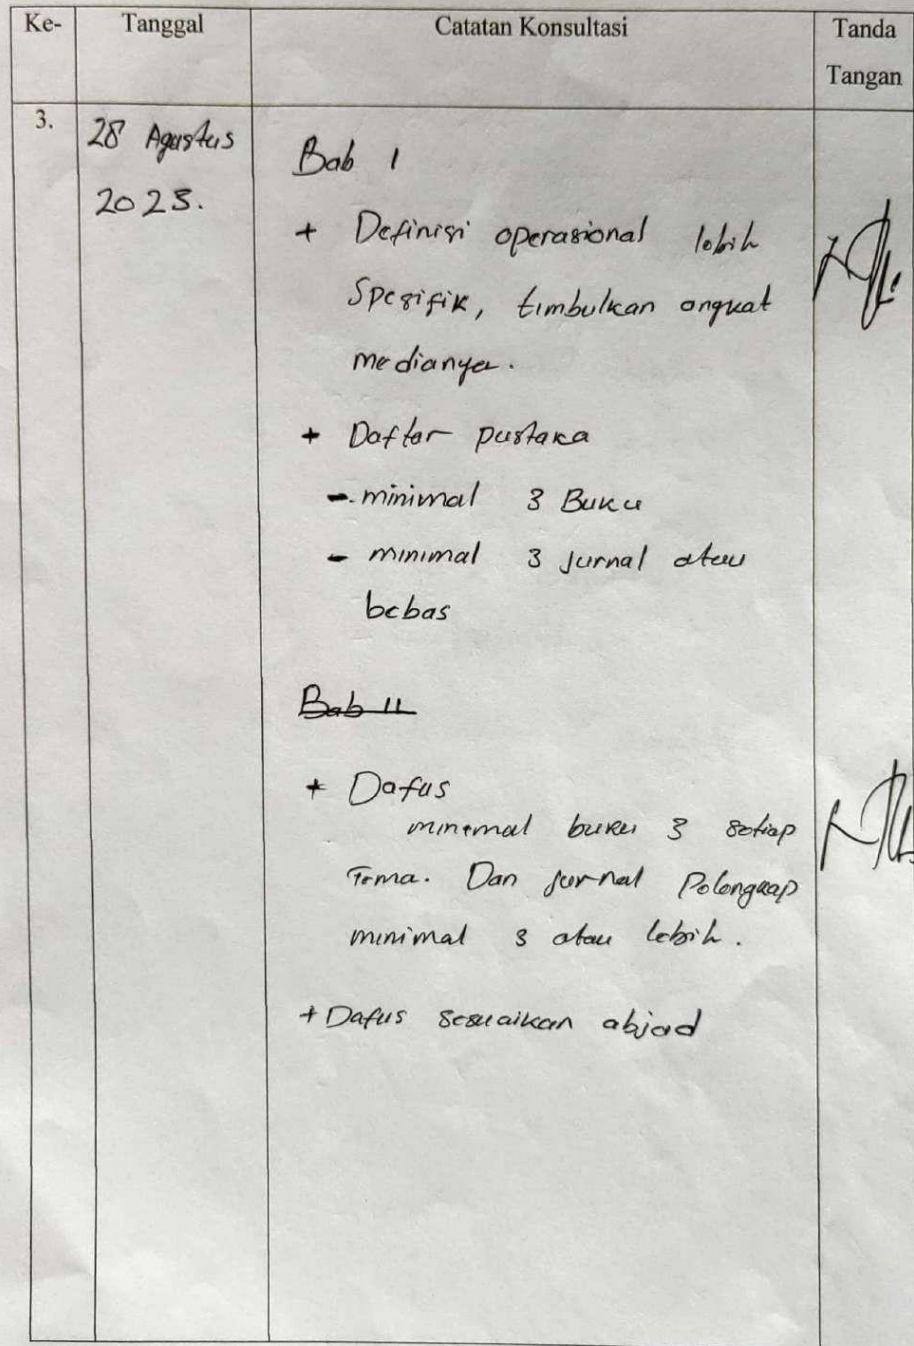 Ke-
Tanggal
Catatan Konsultasi
Tanda
Tangan
3.
28 Agustus
2023.
Bab 1
+ Definisi operasional lebih
Spesifik, timbulkan angkat
medianya.
+ Daftar pustaka
- minimal 3 Buku
- minimal 3 jurnal atau
bebas
Bab II
+ Dafus
minimal buku 3 setiap
Tema. Dan jurnal Pelengkap
minimal 3 atau lebih.
+ Dafus sesuaikan abjad